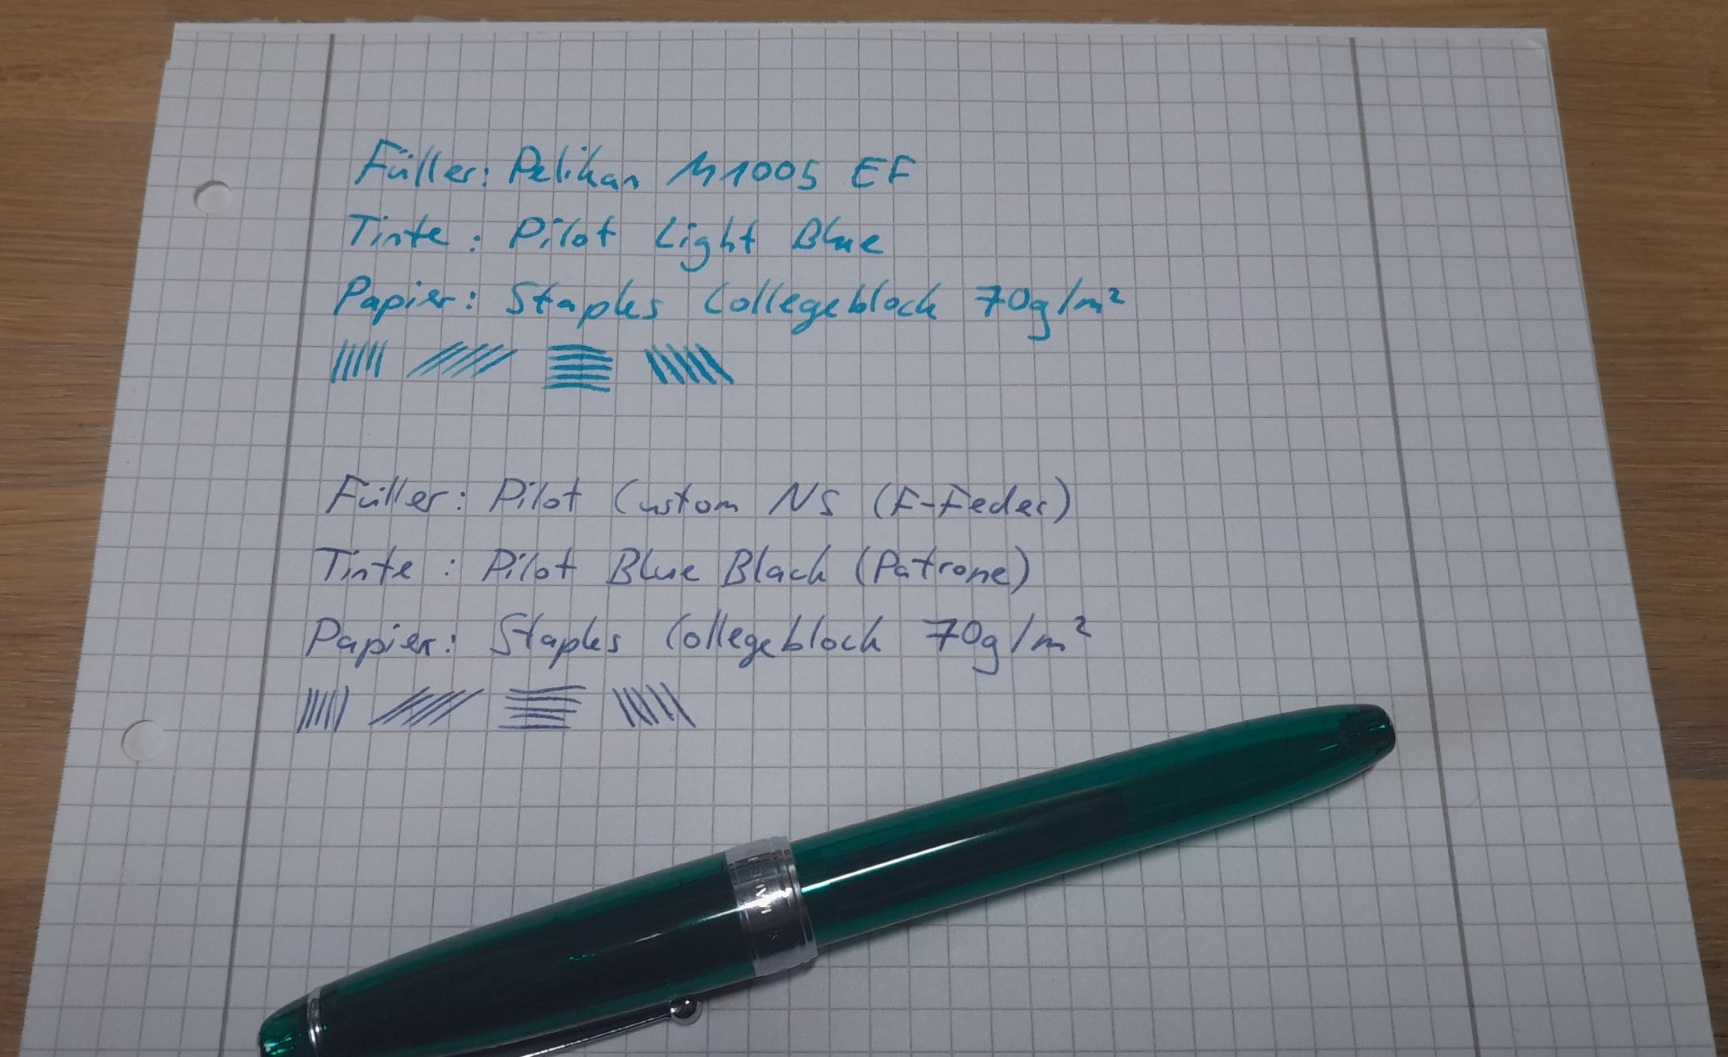 Füller: Pelikan M1005 EF
Tinte: Pilot Light Blue
Papier: Staples Collegeblock 70g/m²
Füller: Pilot Custom NS (F-Feder)
Tinte: Pilot Blue Black (Patrone)
Papier: Staples Collegeblock 70g/m²